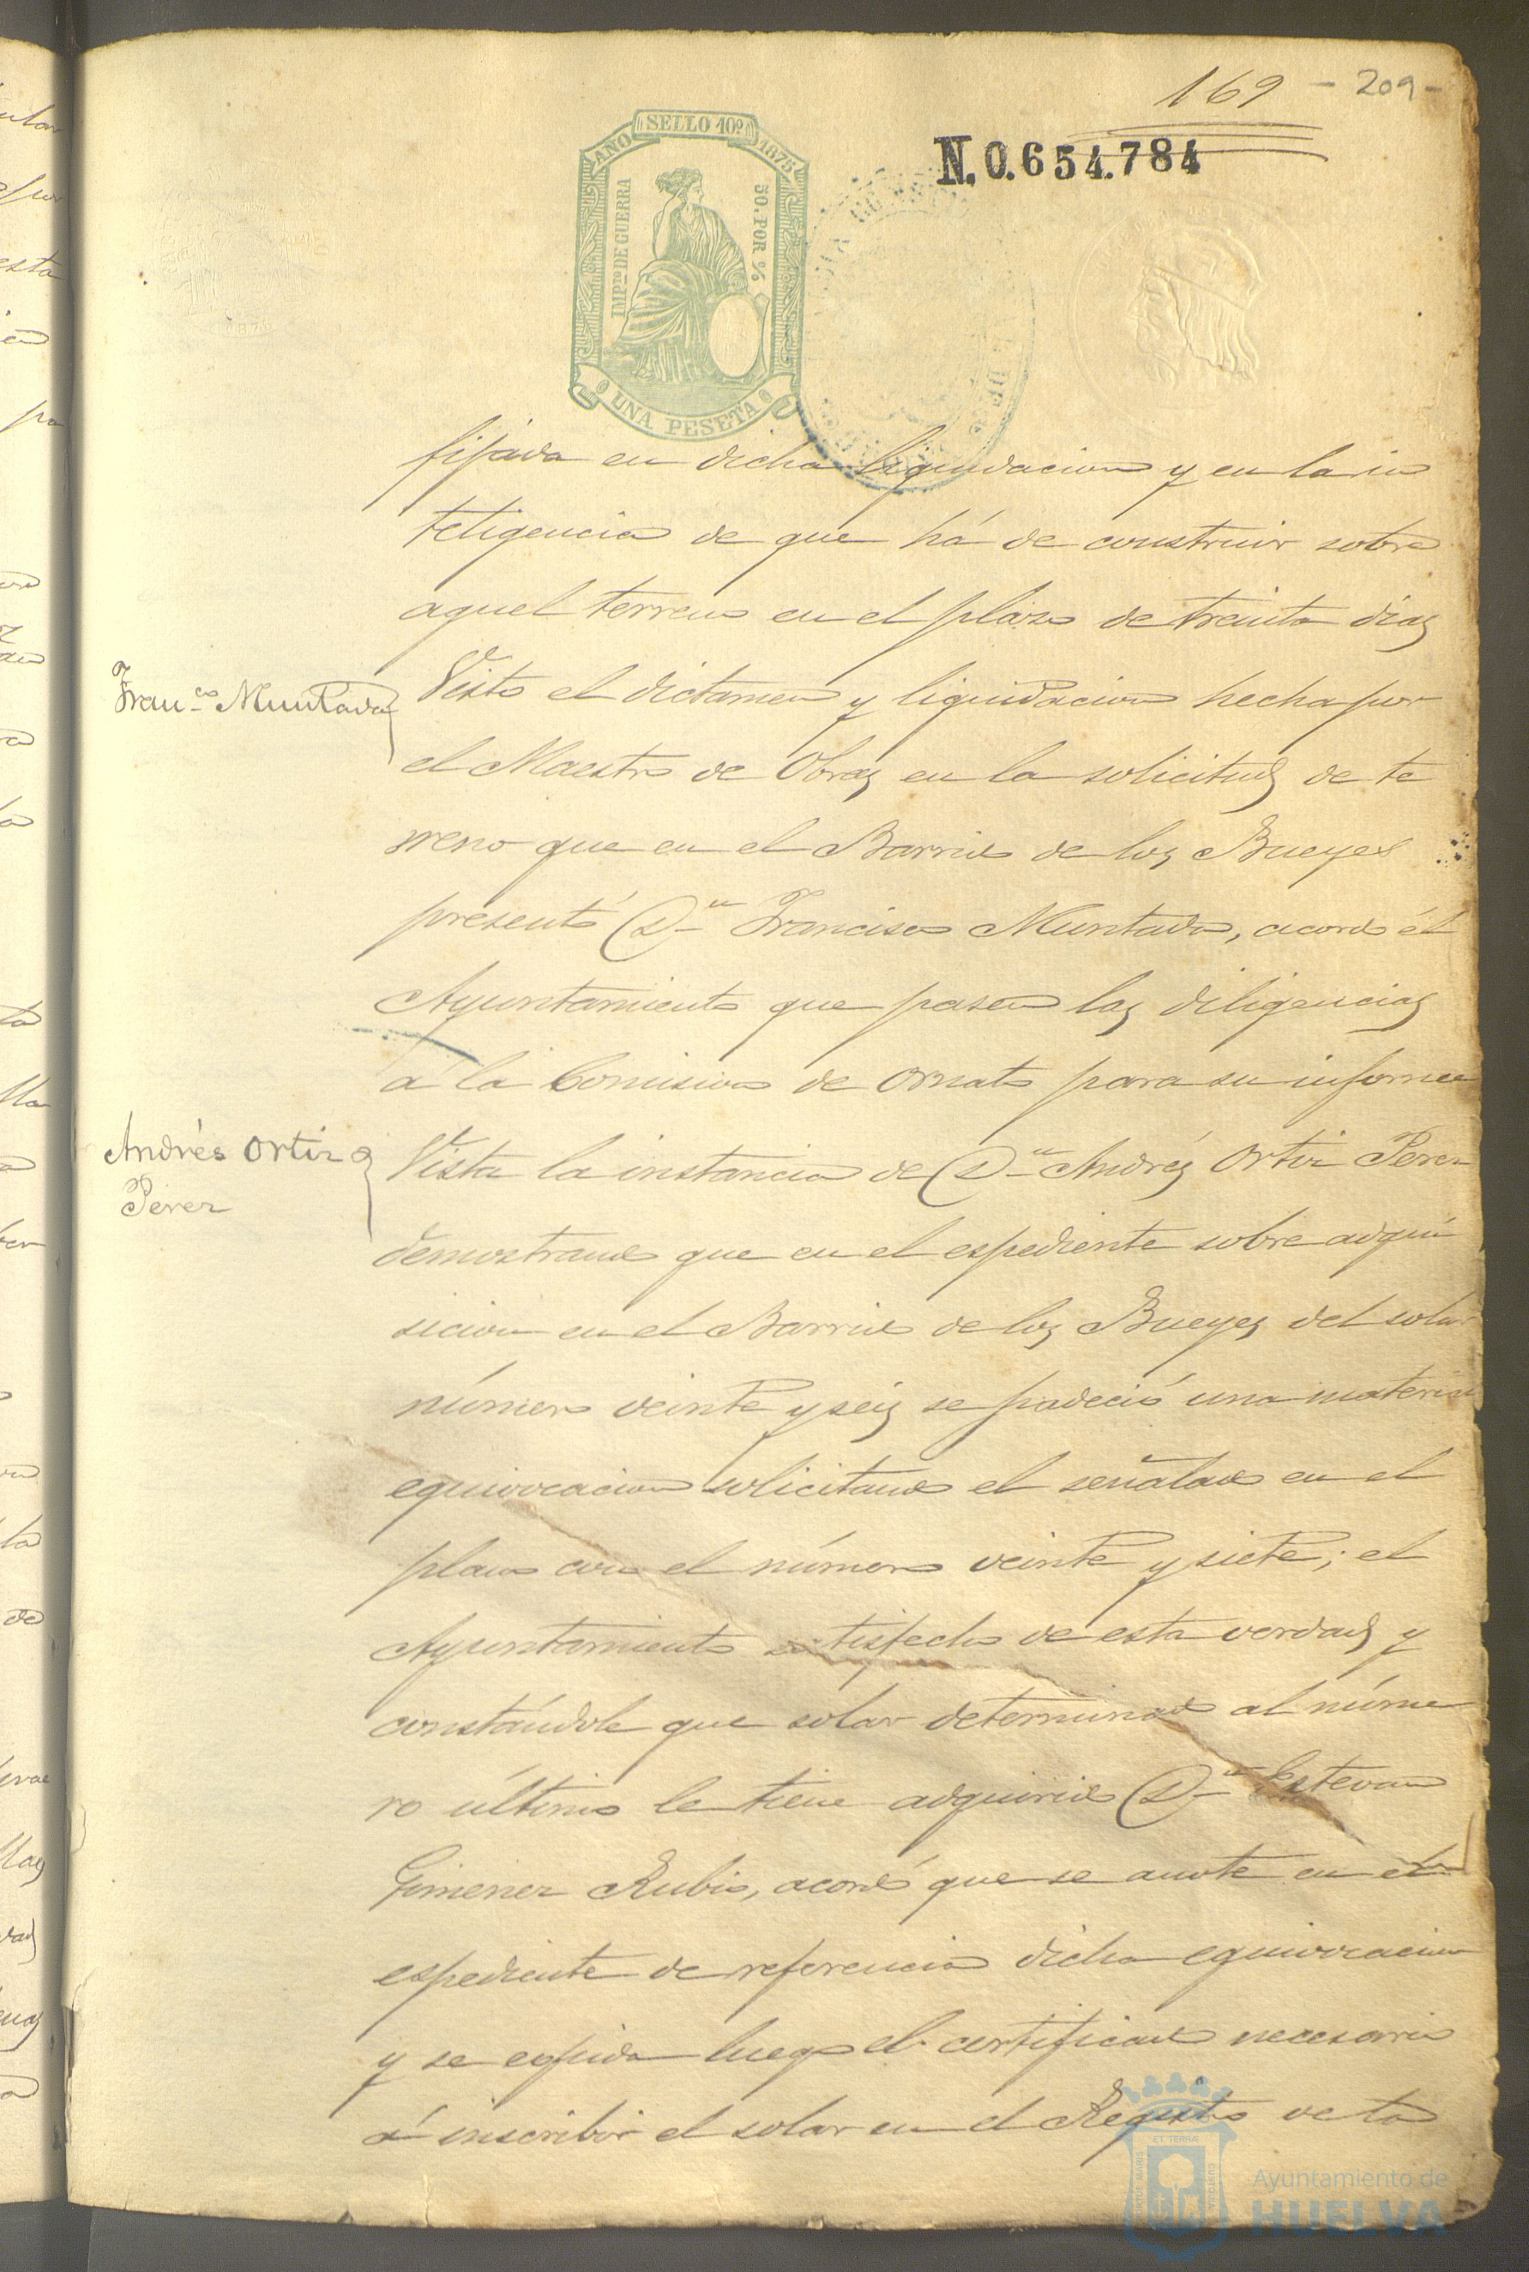 169 - 209 -
N. 0.654.784
AÑO SELLO 10º 1875
IMPTO DE GUERRA
50.POR %
UNA PESETA
1876
fijada en dicha liquidacion y en la in
teligencia de que há de construir sobre
aquel terreno en el plazo de treinta dias
Franco Muntada
Visto el dictamen y liquidacion hecha por
el Maestro de Obras en la solicitud de te
rreno que en el Barrio de los Bueyes
presentó Dn Francisco Muntada, acordó el
Ayuntamiento que pasen las diligencias
á la Comision de ornato para su informe
Andrés Ortiz
Perez
Vista la instancia de Dn Andrés Ortiz Perez
demostrando que en el espediente sobre adqui
sicion en el Barrio de los Bueyes del solar
número veinte y seis se padeció una material
equivocacion solicitando el señalado en el
plano con el número veinte y siete; el
Ayuntamiento satisfecho de esta verdad y
constándole que solar determinado al núme
ro último le tiene adquirido Dn Estevan
Gimenez Rubio, acordó que se anote en el
espediente de referencia dicha equivocacion
y se espida luego el certificado necesario
á inscribir el solar en el Registro de la
ET TERRÆ
Ayuntamiento de
HUELVA